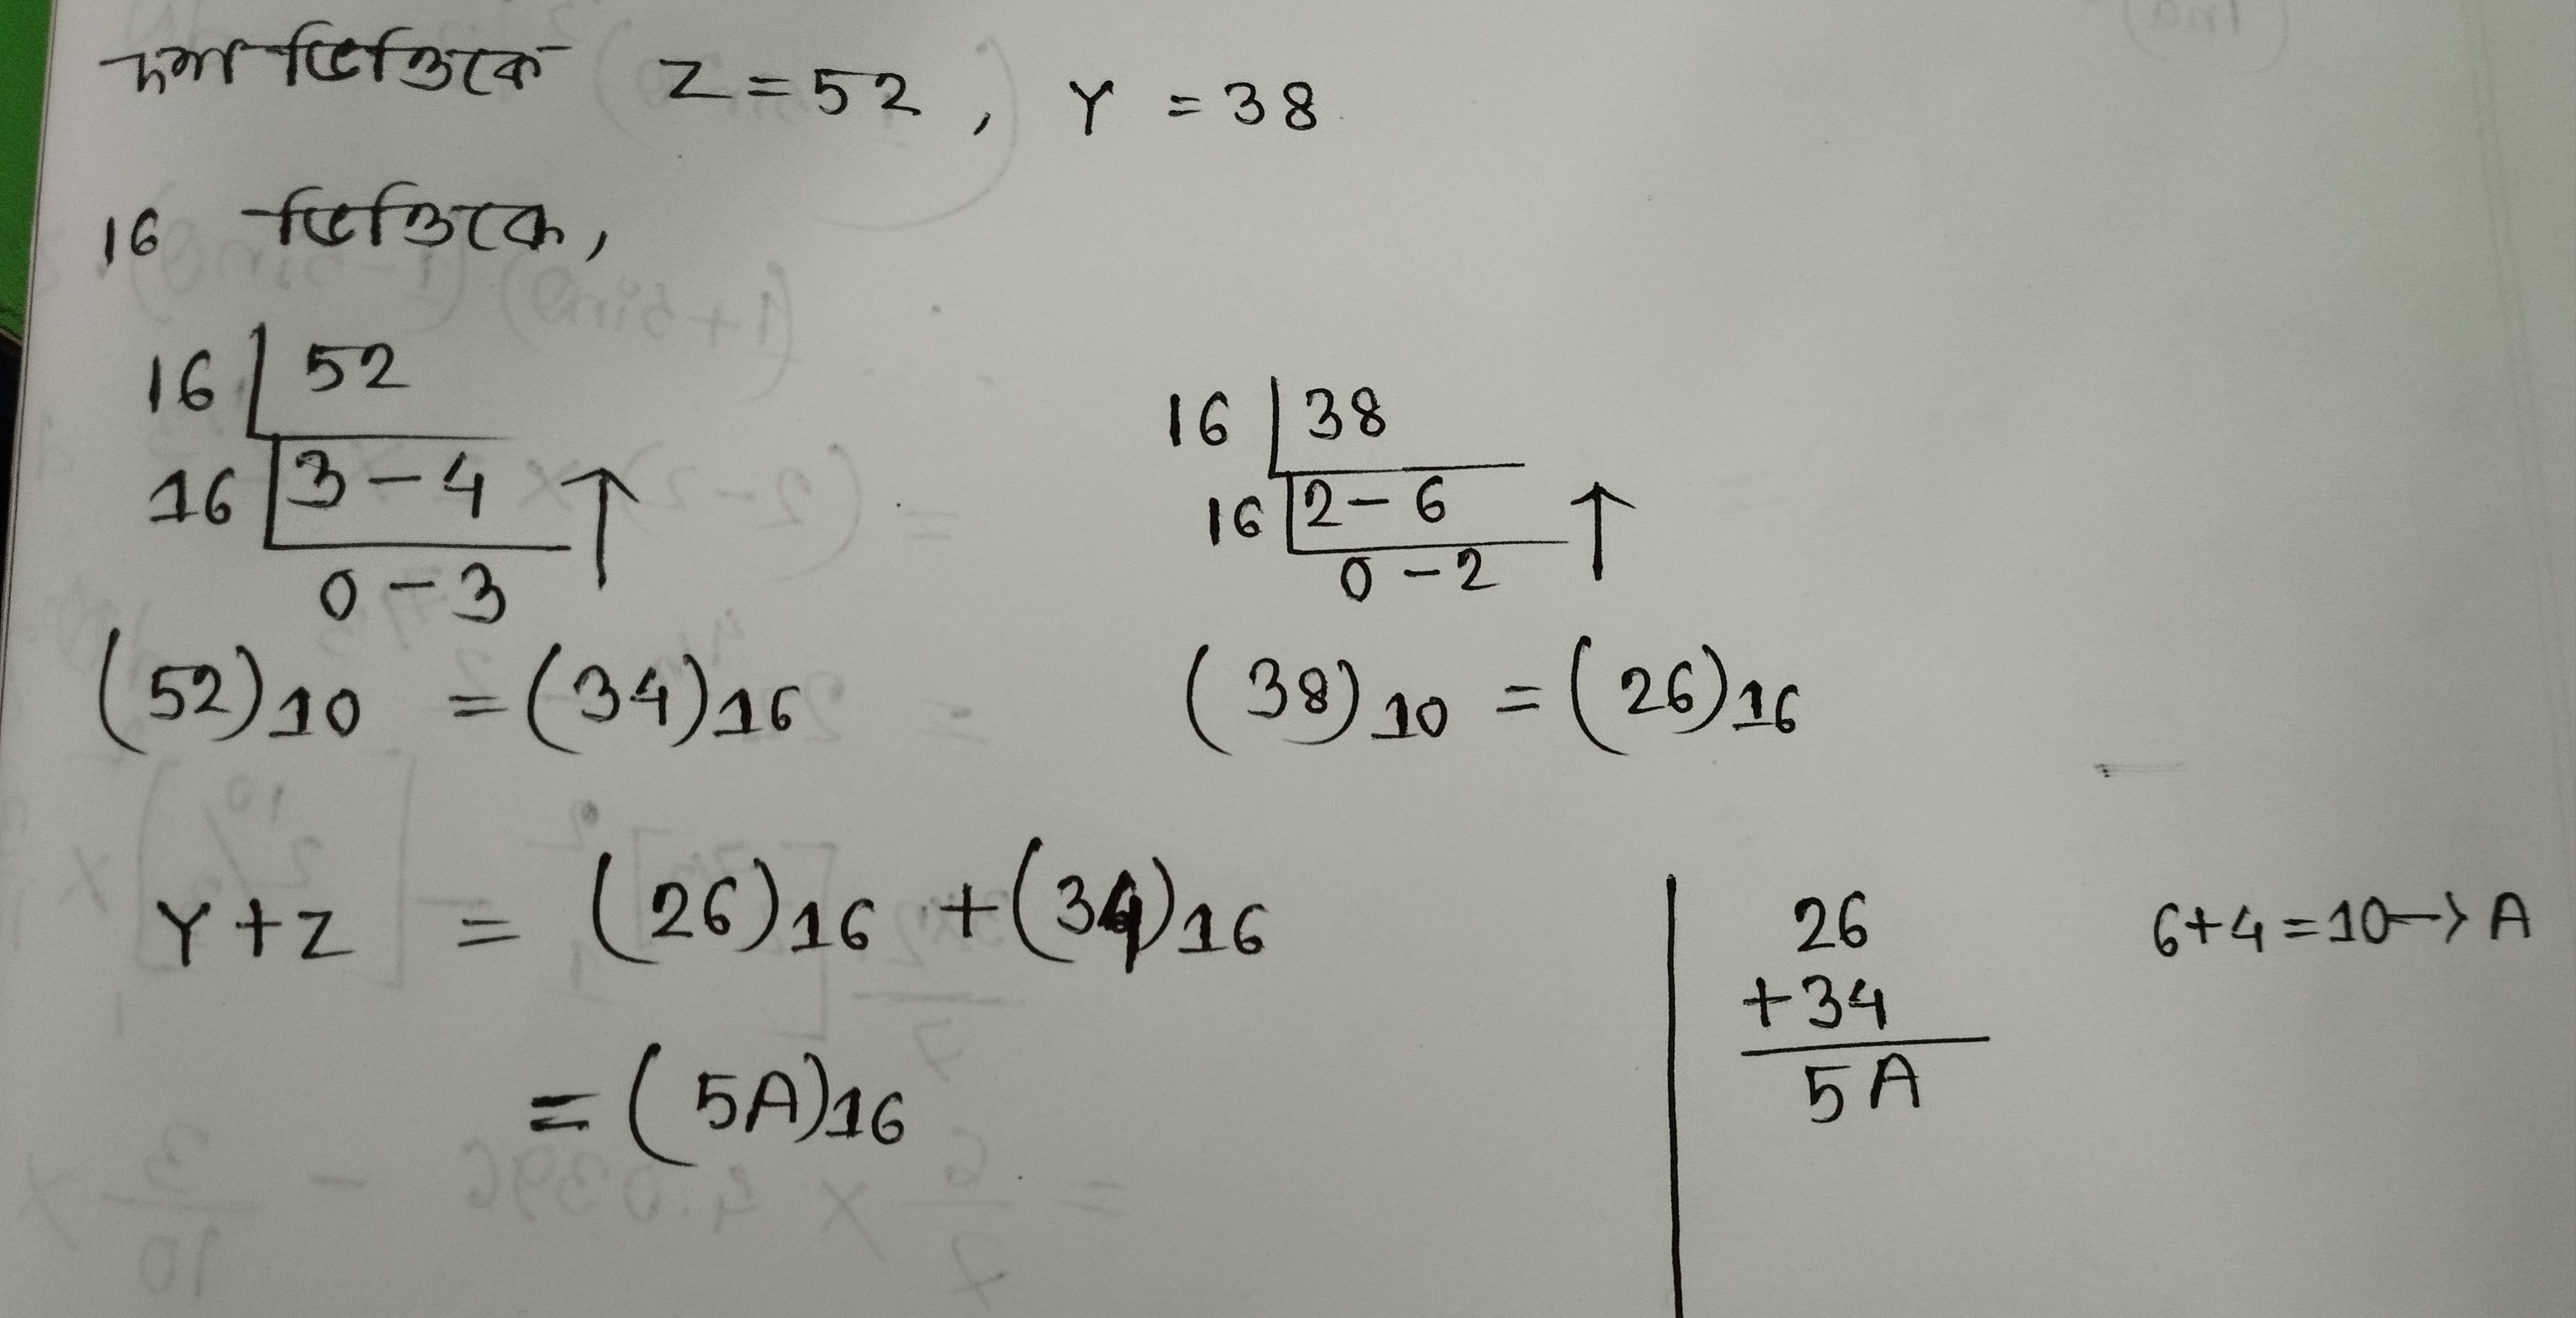 দশ ভিত্তিকে Z = 52 , Y = 38
16 ভিত্তিকে,
16 | 52
16 | 3 - 4 ↑
0 - 3
16 | 38
16 | 2 - 6 ↑
0 - 2
(52)10 = (34)16
(38)10 = (26)16
Y + Z = (26)16 + (34)16
= (5A)16
26
+34
5A
6+4 = 10 → A